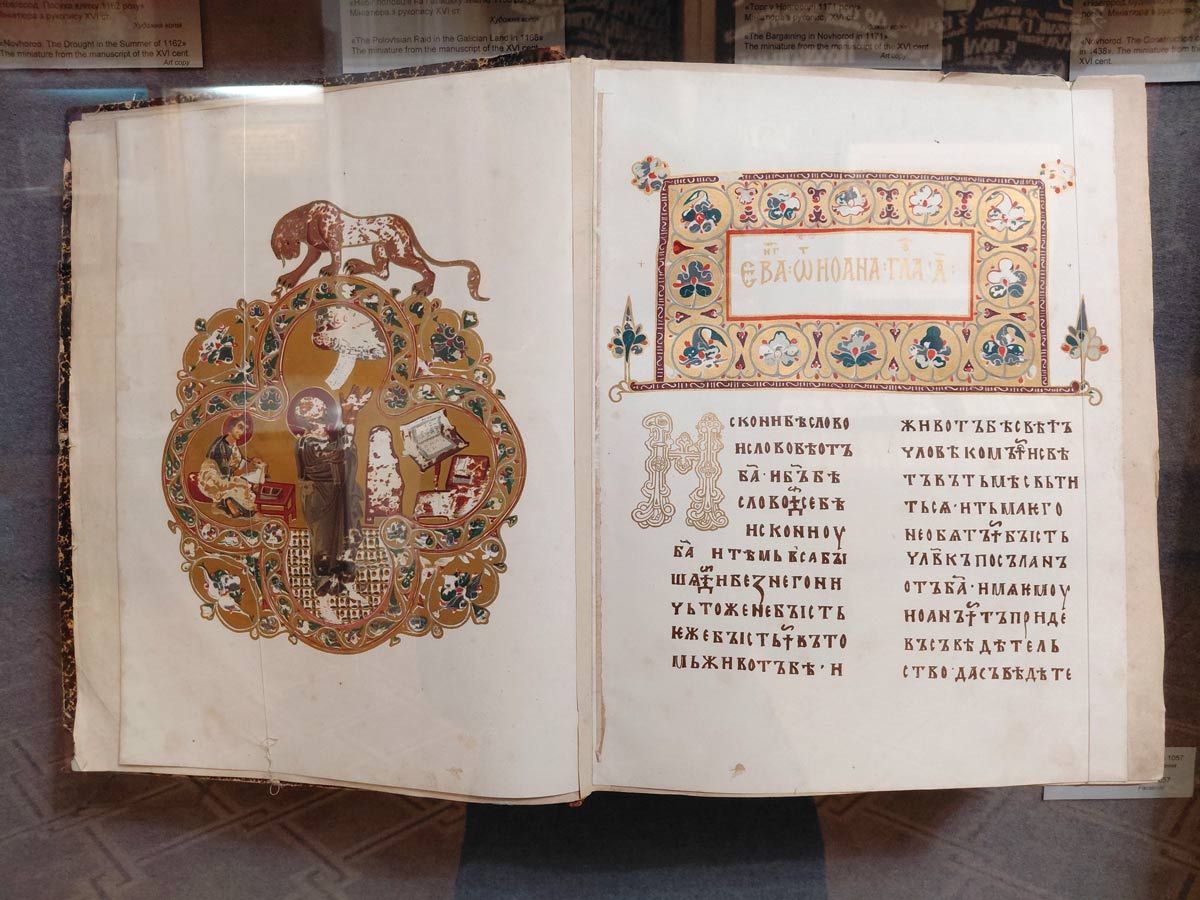 Художня копія
«Novhorod. The Drought in the Summer of 1162»
The miniature from the manuscript of the XVI cent.
Art copy
Мініатюра з рукопису XVI ст.
Художня копія
«The Polovtsian Raid in the Galician Land in 1168»
The miniature from the manuscript of the XVI cent.
Art copy
Мініатюра з рукопису XVI ст.
Художня копія
«The Bargaining in Novhorod in 1171»
The miniature from the manuscript of the XVI cent.
Art copy
in 1438». The miniature from the
XVI cent.
ЕВА·ѾИОАНА·ГЛА·А҃·
ИСКОНИБѢСЛОВО
ИСЛОВОБѢОТЪ
БА҃·ИБЪ҃БѢ
СЛОВО
ИСКОНИОУ
БА҃ ИТѢМЬВЬСАБЫ
ШѦИБЕЗНЕГОНИ
ЧЬТОЖЕНЕБЫСТЬ
ѤЖЕБЫСТЬВЪТО
МЬЖИВОТЪБѢ·И
ЖИВОТЪБѢСВѢТЪ
ЧЛОВѢКОМЪИСВѢ
ТЪВЪТЬМѢСВЬТИ
ТЬСѦ·ИТЬМАѤГО
НЕОБѦТЪБЫСТЬ
ЧЛВ҃КЪПОСЪЛАНЪ
ОТЪБА҃·ИМѦѤМОУ
ИОАНЪТЪПРИДЕ
ВЪСЪВѢДѢТЕЛЬ
СТВО·ДАСЪВѢДѢТЕ
1057
Facsimile